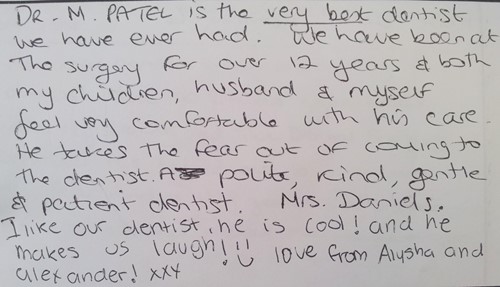 DR. M. PATEL is the very best dentist
we have ever had. We have been at
The surgery for over 12 years & both
my children, husband & myself
feel very comfortable with his care.
He takes The fear out of coming to
the dentist. A polite, kind, gentle
& patient dentist. Mrs. Daniels.
I like our dentist. he is cool! and he
makes us laugh! love from Alysha and
alexander! xxx